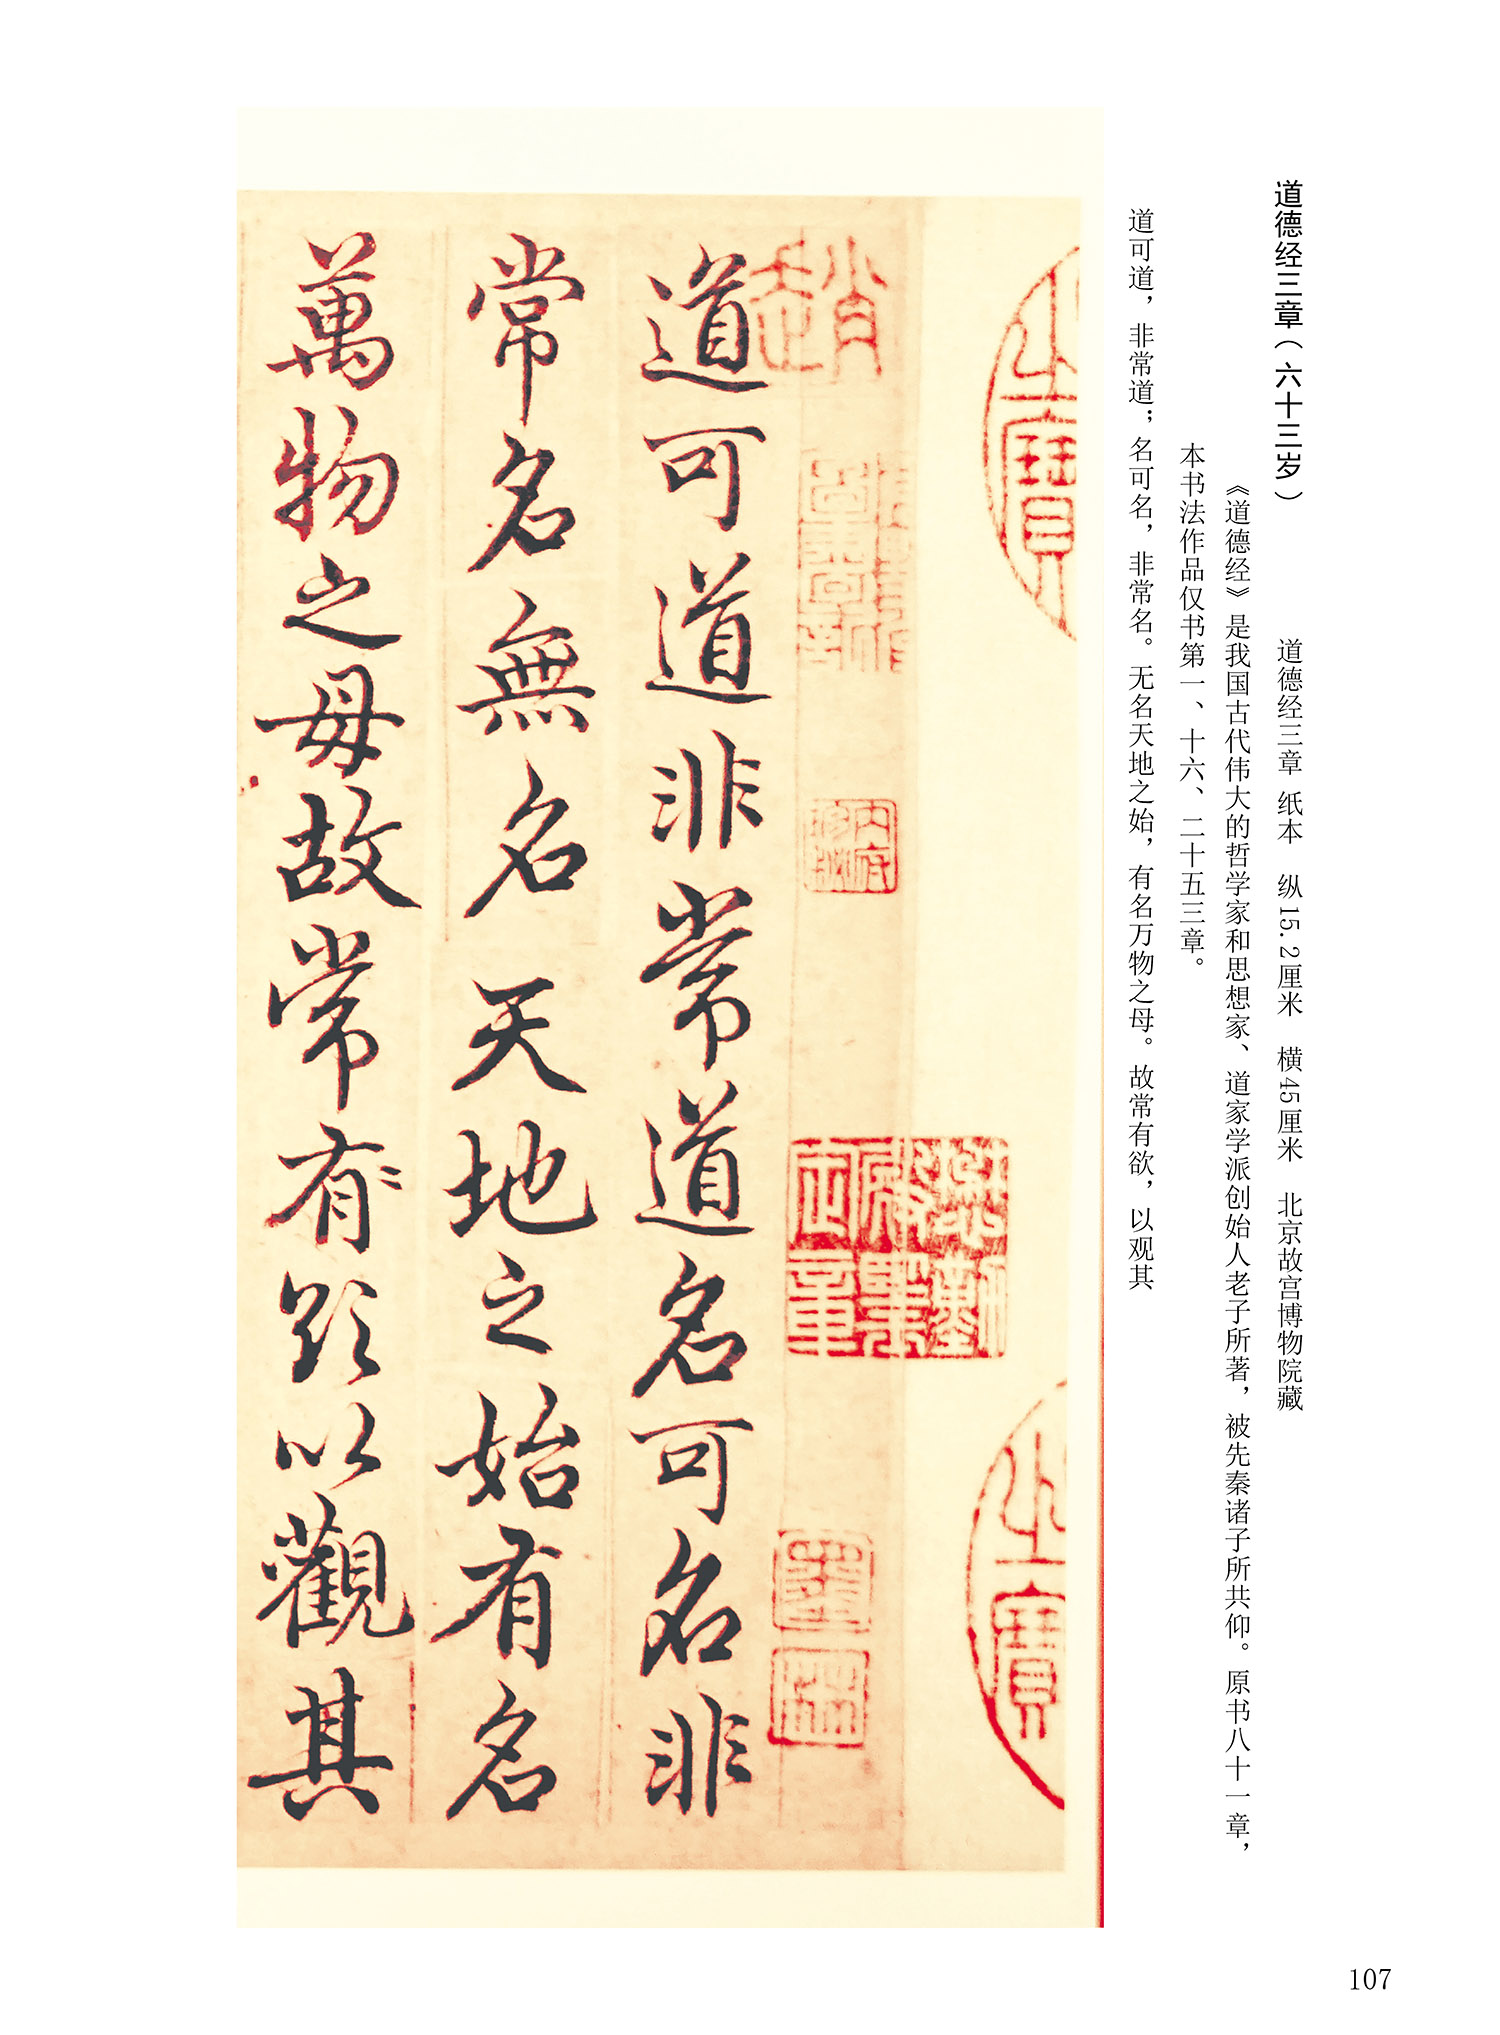 道德经三章（六十三岁）
道德经三章 纸本 纵15.2厘米 横45厘米 北京故宫博物院藏
《道德经》是我国古代伟大的哲学家和思想家、道家学派创始人老子所著，被先秦诸子所共仰。原书八十一章，
本书法作品仅书第一、十六、二十五三章。
道可道，非常道；名可名，非常名。无名天地之始，有名万物之母。故常有欲，以观其
之寶
之寶
趙
内府
道可道非常道名可名非
常名無名天地之始有名
萬物之母故常有欲以觀其
107